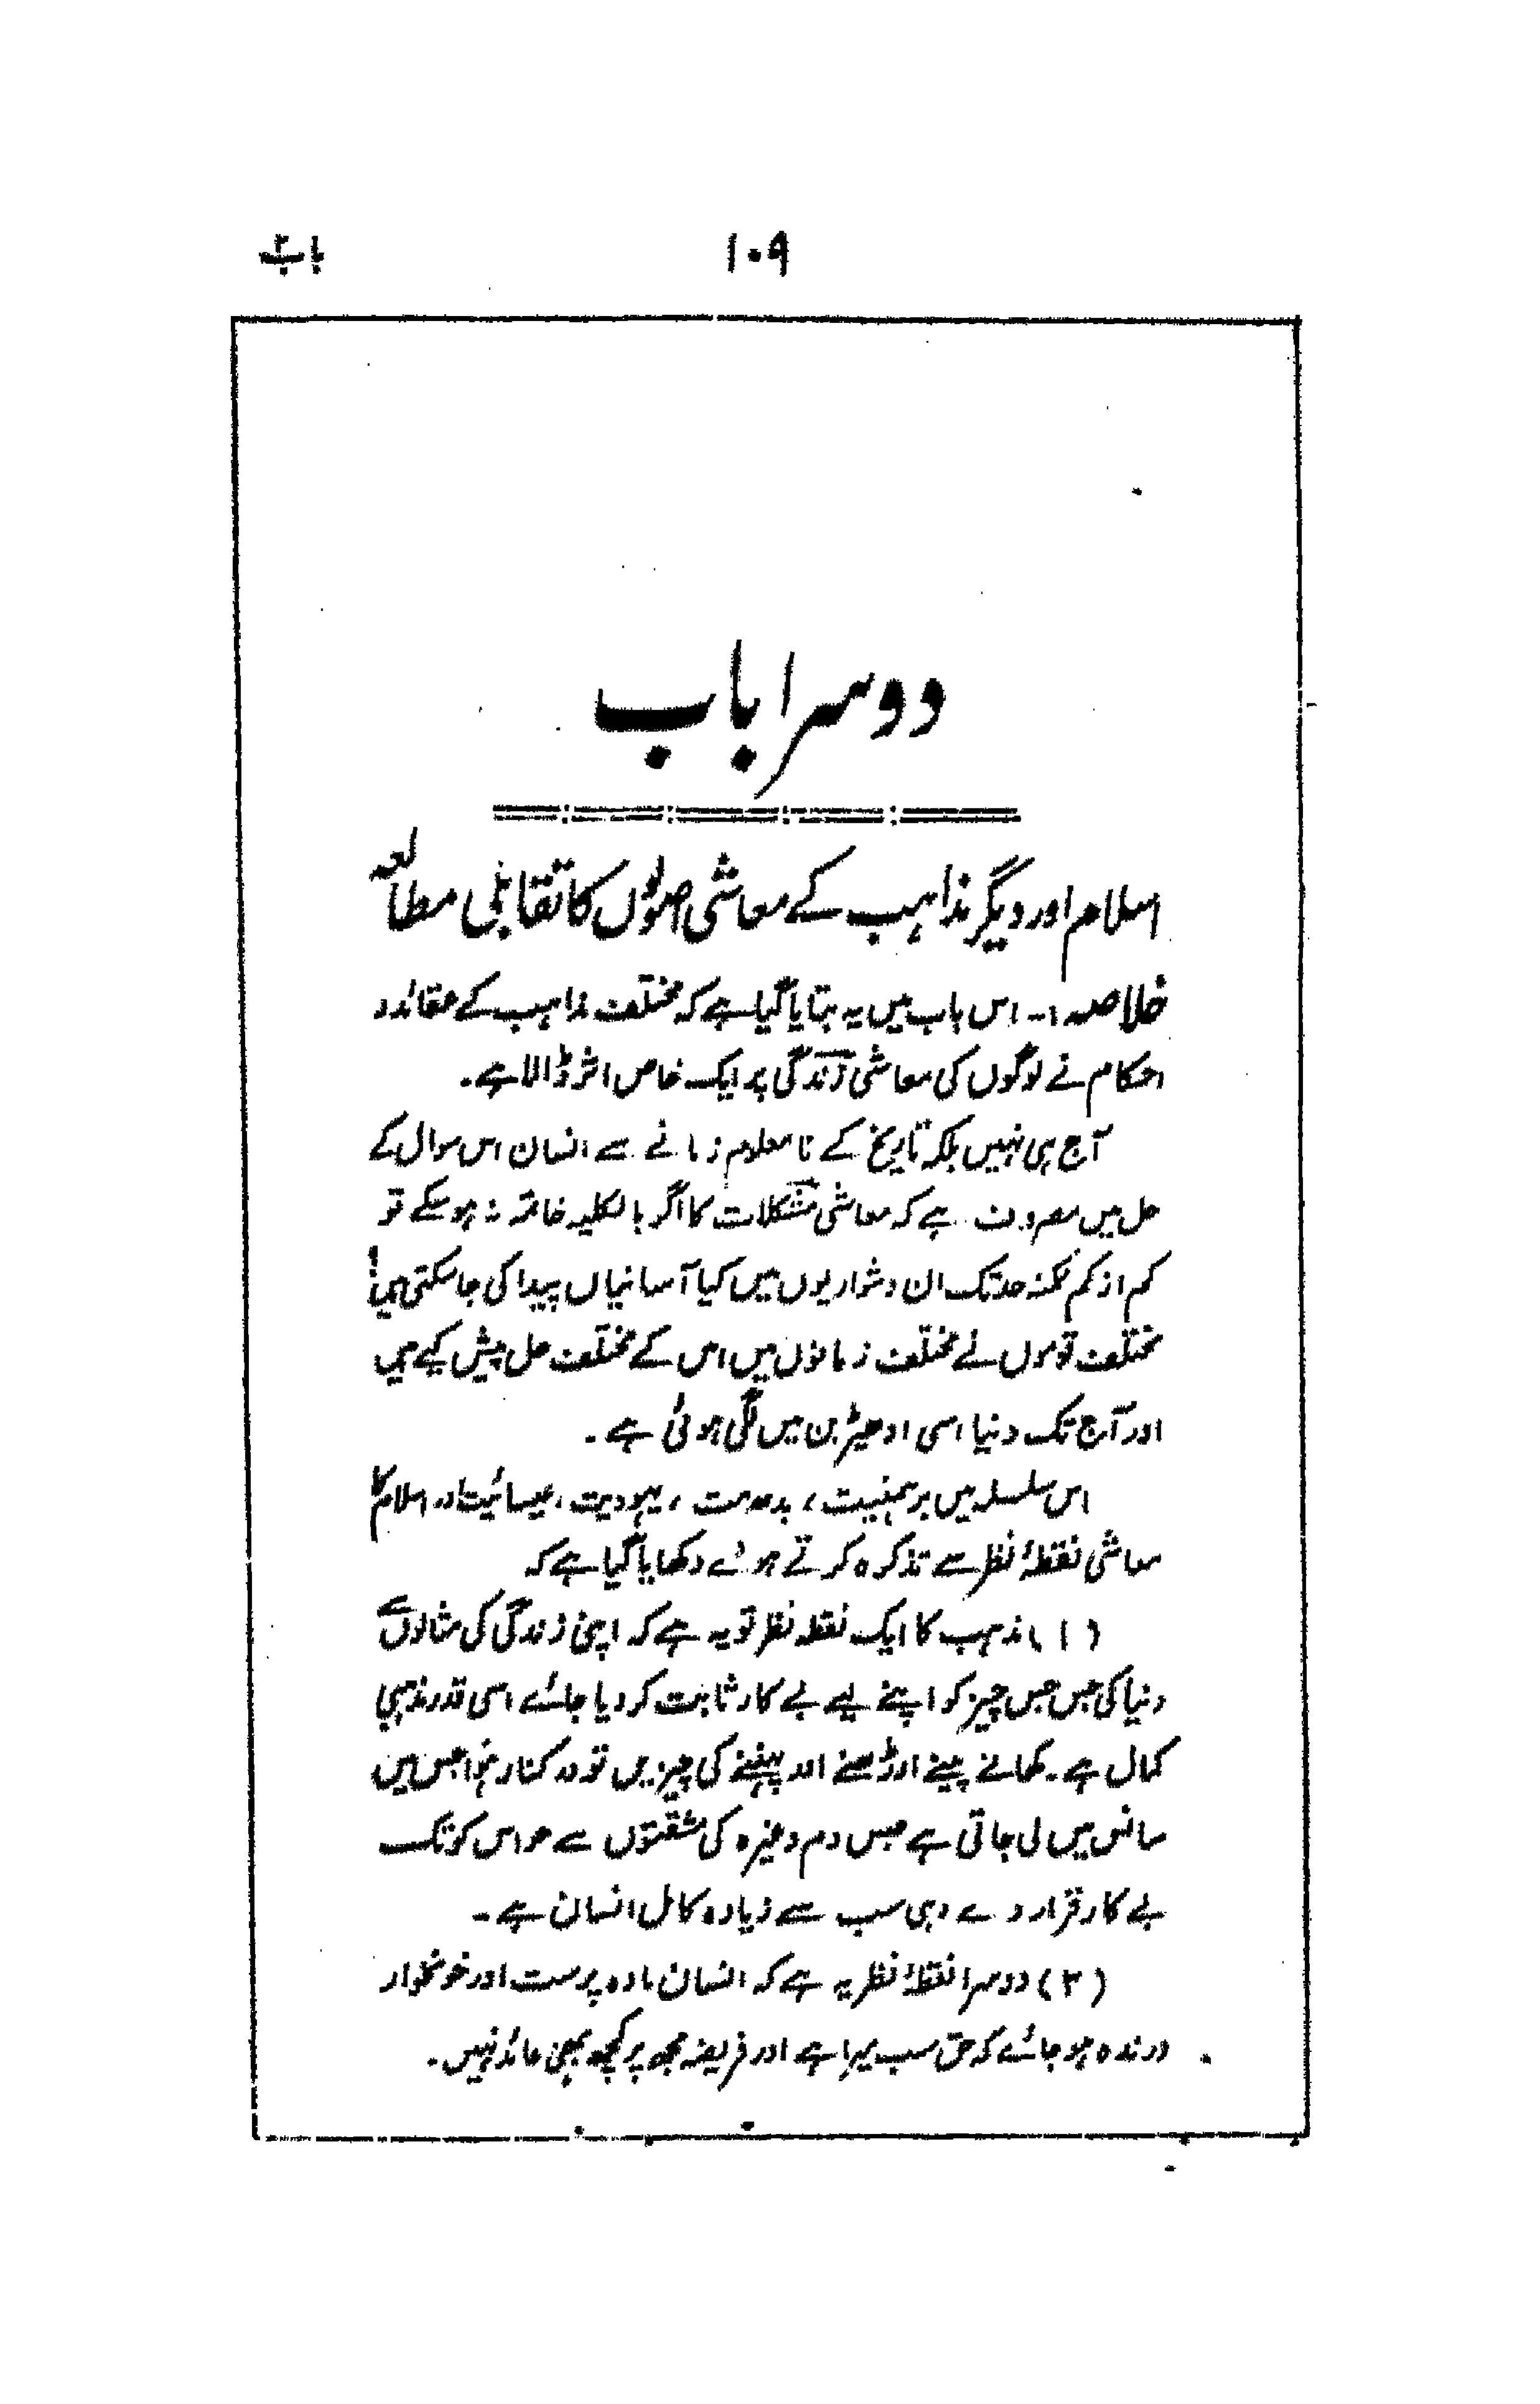 ۱۰۹
باب۲
دوسرا باب
اسلام اور دیگر مذاہب کے معاشی اصولوں کا تقابلی مطالعہ
خلاصہ:- اس باب میں یہ بتایا گیا ہے کہ مختلف مذاہب کے عقائد و
احکام نے لوگوں کی معاشی زندگی پر ایک خاص اثر ڈالا ہے۔
آج ہی نہیں بلکہ تاریخ کے نا معلوم زمانے سے انسان اس سوال کے
حل میں مصروف ہے کہ معاشی مشکلات کا اگر بالکلیہ خاتمہ نہ ہو سکے تو
کم از کم ممکنہ حد تک ان دشواریوں میں کیا آسانیاں پیدا کی جا سکتی ہیں!
مختلف قوموں نے مختلف زمانوں میں اس کے مختلف حل پیش کیے ہیں
اور آج تک دنیا اسی ادھیڑ بن میں لگی ہوئی ہے۔
اس سلسلہ میں برہمنیت، بدھ مت، یہودیت، عیسائیت اور اسلام کا
معاشی نقطۂ نظر سے تذکرہ کرتے ہوئے دکھایا گیا ہے کہ
(۱) مذہب کا ایک نقطہ نظر تو یہ ہے کہ اپنی زندگی کی مثالوں سے
دنیا کی جس جس چیز کو اپنے لیے بے کار ثابت کر دیا جائے اسی قدر مذہبی
کمال ہے۔ کھانے پینے اوڑھنے اور پہننے کی چیزیں تو درکنار ہوا جس میں
سانس میں لی جاتی ہے حبس دم وغیرہ کی مشقتوں سے جو اس کو تک
بے کار قرار دے وہی سب سے زیادہ کامل انسان ہے۔
(۲) دوسرا نقطۂ نظر یہ ہے کہ انسان مادہ پرست اور خونخوار
درندہ ہو جائے کہ حق سب میرا ہے اور فریضہ مجھ پر کچھ بھی عائد نہیں۔